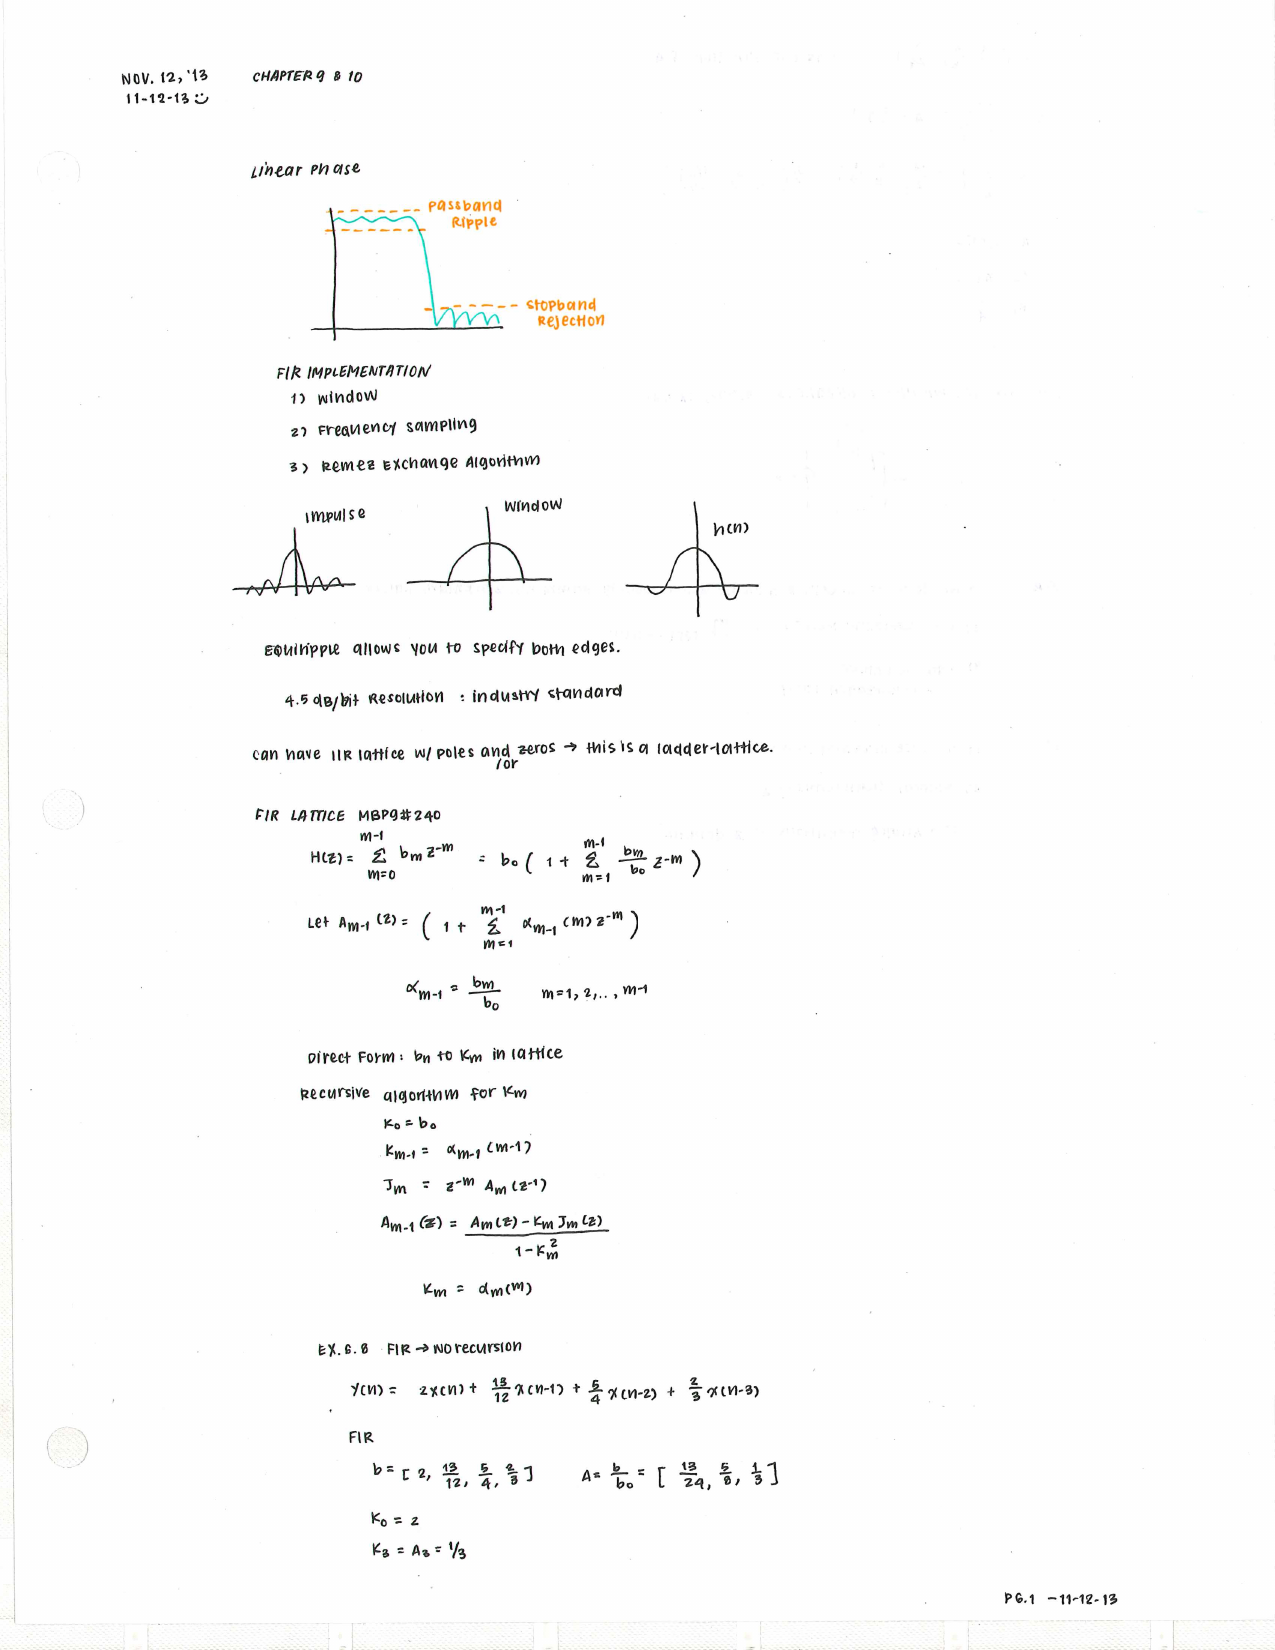 NOV. 12, '13 CHAPTER 9 & 10
11-12-13
Linear Phase
Passband
Ripple
Stopband
Rejection
FIR IMPLEMENTATION
1) Window
2) Frequency sampling
3) Remez Exchange Algorithm
impulse
Window
h(n)
EQuiripple allows you to specify both edges.
4.5 dB/bit Resolution : industry standard
can have IIR lattice w/ poles and zeros → this is a ladder-lattice.
/or
FIR LATTICE MBP9#240
H(z) = Σ_{m=0}^{m-1} b_m z^-m = b_0 ( 1 + Σ_{m=1}^{m-1} b_m/b_0 z^-m )
Let A_{m-1} (z) = ( 1 + Σ_{m=1}^{m-1} α_{m-1} (m) z^-m )
α_{m-1} = b_m/b_0 m=1, 2,.. , m-1
Direct Form : b_n to K_m in lattice
Recursive algorithm for K_m
K_0 = b_0
K_{m-1} = α_{m-1} (m-1)
J_m = z^-m A_m (z^-1)
A_{m-1} (z) = A_m (z) - K_m J_m (z) / 1 - K_m^2
K_m = α_m (m)
EX. 6.8 FIR → NO recursion
y(n) = 2x(n) + 13/12 x(n-1) + 5/4 x(n-2) + 2/3 x(n-3)
FIR
b = [ 2, 13/12, 5/4, 2/3 ] A = b/b_0 = [ 13/24, 5/8, 1/3 ]
K_0 = 2
K_3 = A_3 = 1/3
PG.1 -11-12-13